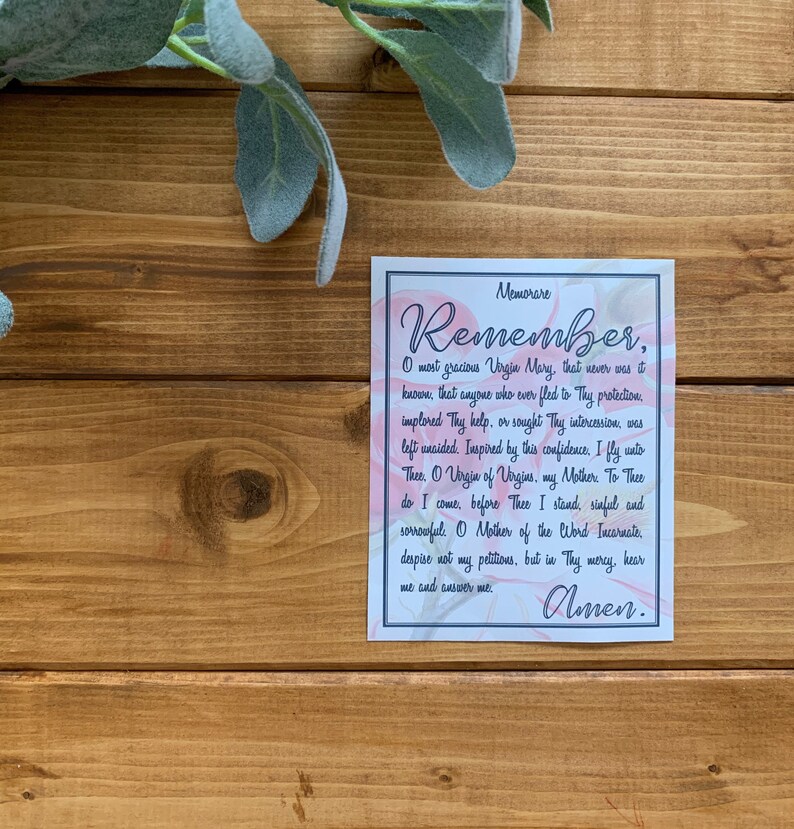 Memorare
Remember,
O most gracious Virgin Mary, that never was it
known, that anyone who ever fled to Thy protection,
implored Thy help, or sought Thy intercession, was
left unaided. Inspired by this confidence, I fly unto
Thee, O Virgin of Virgins, my Mother. To Thee
do I come, before Thee I stand, sinful and
sorrowful. O Mother of the Word Incarnate,
despise not my petitions, but in Thy mercy, hear
me and answer me.
Amen.